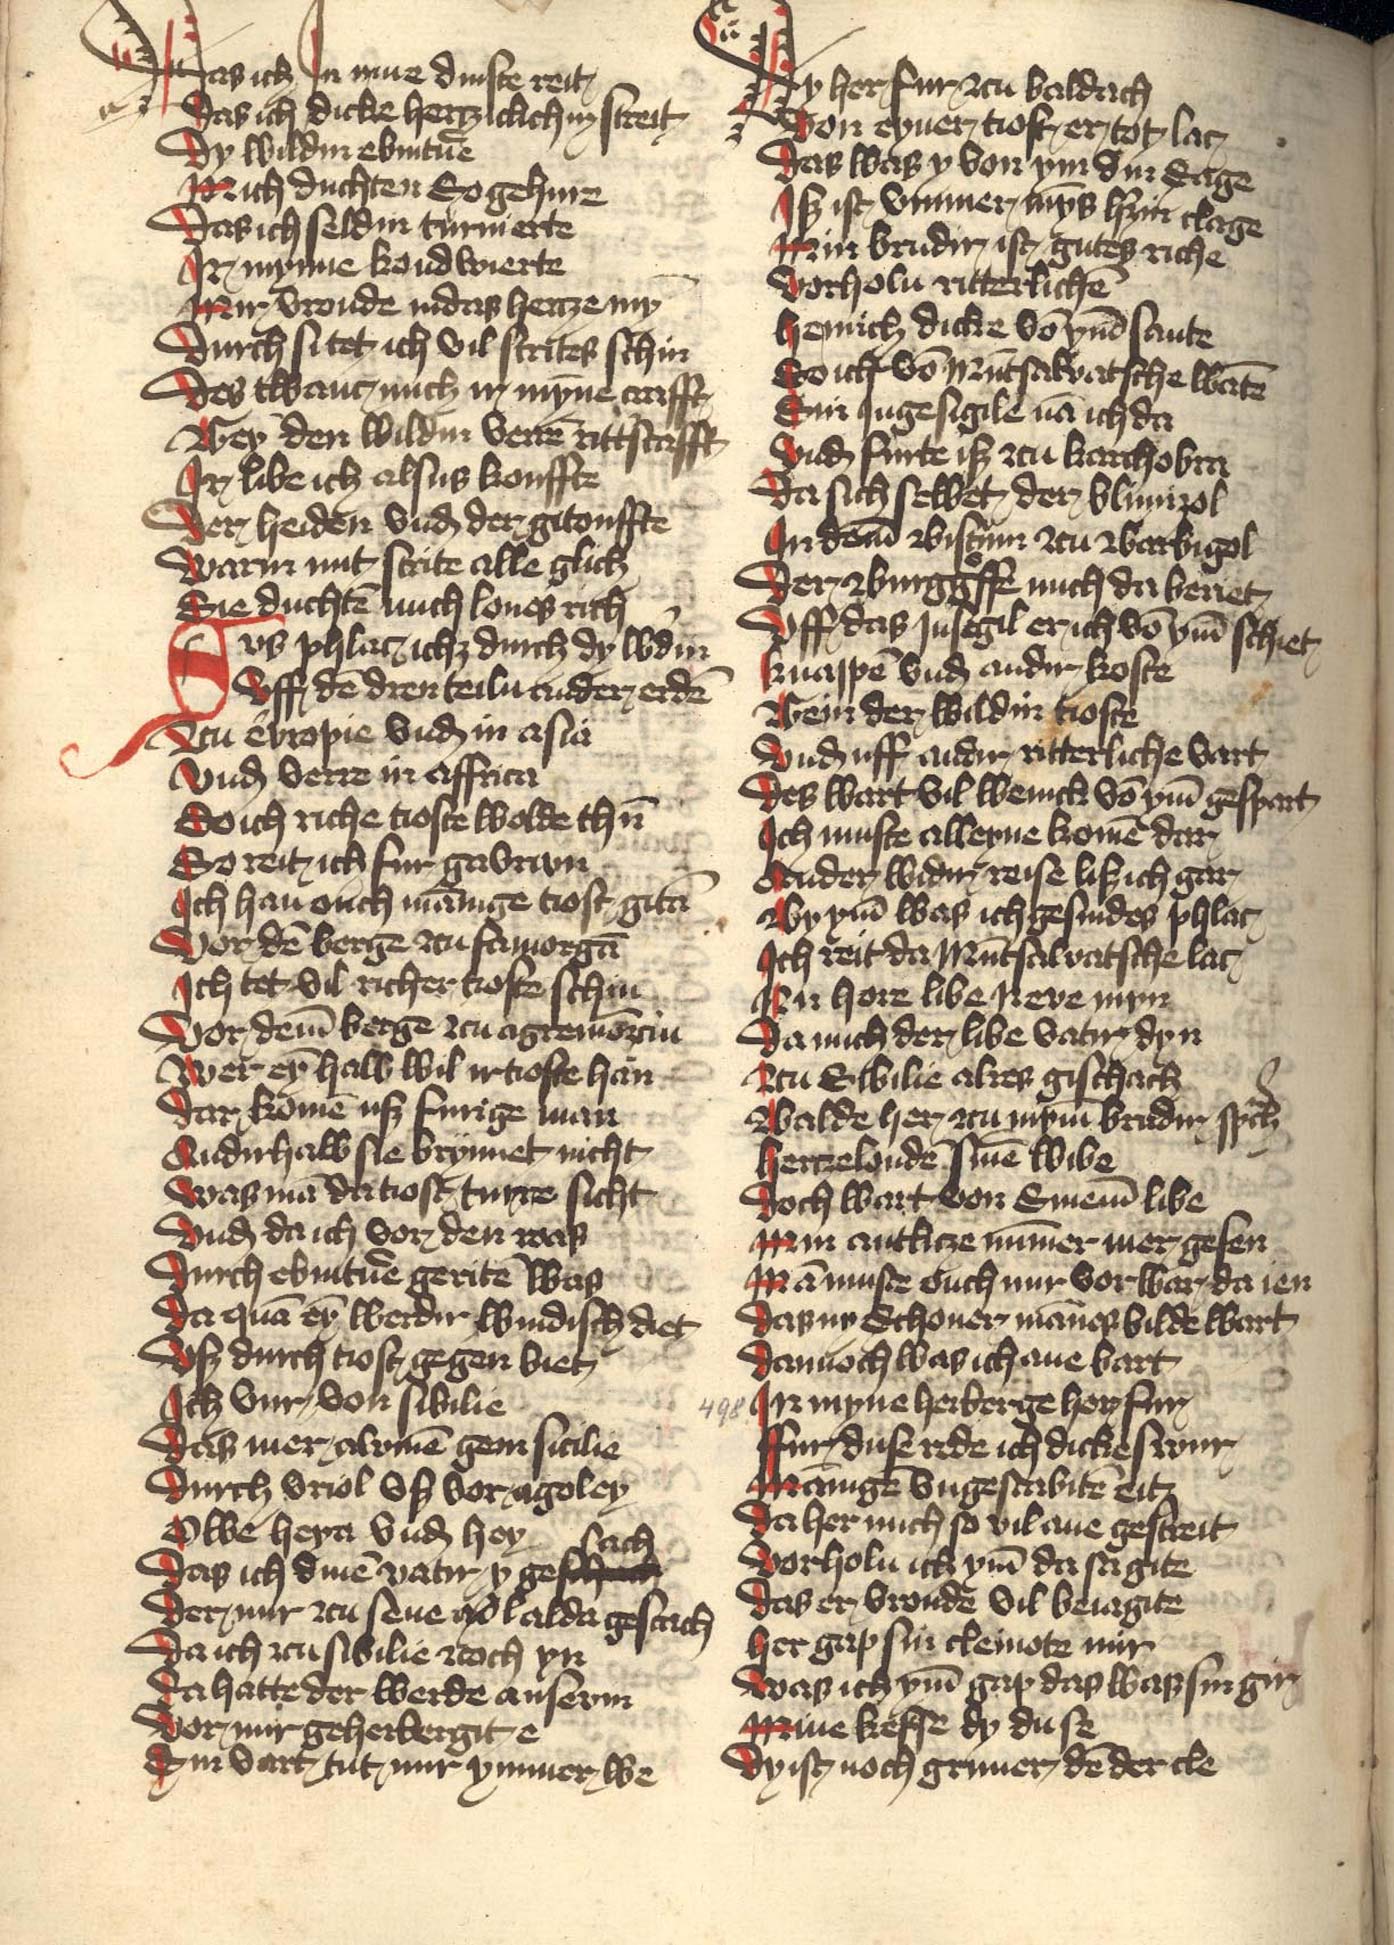 Das ich In irme dinste reit
Das ich dicke hertziclichin streit
Dy wildin ebintūe
Mich duchten So gehure
Das ich seldin turnierte
Ir mynne kondwierte
Mir vronde in das hertze mȳ
Durch si tet ich vil strites schin
Des twanc mich ir mȳne crafft
Bey den wildin verrē rittscafft
Ir libe ich alsus kouffte
Der heiden vnd der gitouffte
Warin mit strite alle glich
Sie duchtē mich lones rich
Sus phlac ichz durch dy wdin
Vff dē dren teiln in der erdē
Zcu ebropie vnd in asia
Vnd verre in affrica
Do ich riche tioste wolde thū
So reit ich fur gavriun
Ich han ouch mānige tiost gitā
Vor dē berge zcu famorgā
Ich tet vil richer tioste schin
Vor dem berge zcu agremōzcin
Wer eȳ halb wil ir tioste han
Dar komē vsz furige man
Andirhalb sie brynnet nicht
Was mā da tiost ture sicht
Vnd da ich vor den roas
Durch ebintūe geritē was
Da quā eȳ werdir windisch diet
Vsz durch tiost gegen biet
Ich vur von sibilie
Das mer alvmē gem sicilie
Durch vriol vsz vor agoley
Owe heya vnd hey
Das ich dinē vatir y gesach
Der mir zcu sene alda gescach
Da ich zcu sibilie zcoch yn
Da hatte der werde ansevin
Vor mir geherbergit e
Sin vart tut mir ymmer we
Dy her fur zcu baldach
Von eyner tiost er tot lac
Das was y von ym din Sage
Isz ist vmmer mȳs hzin clage
Min brudir ist gutes riche
Vorholn ritterlichē
Her mich dicke vō ym sante
So ich vō Mūtsalvatsche wāte
Sin Ingesigile nā ich da
Vnd furte isz zcu karchobra
Da sich sewet der blimizol
In dem bistum zcu barbigol
Der burggffe mich da beriet
Vff das Insegil er ich vō ym schiet
Knappē vnd andir koste
Kein der wildin tioste
Vnd uff andir ritterliche vart
Des wart vil wenick vō ym gespart
Ich muste alleyne komē dar
An der widir reise lisz ich gar
By ym was ich gesindes phlac
Ich reit da Mūtsalvatsche lac
Nu hore libe Neve myn
Da mich der libe vatir dyn
Zcu Sibilie alres gischach
Balde her zcu mym brudir spch
Hertzeloudē sinē wibe
Doch wart von Sinem libe
Min antlicze nūmer mer gesen
Mā muste ouch mir vor war da ien
Das ny Schoner mānes bilde wart
Dannoch was ich ane bart
In myne herberge her fur
Ffur duse rede ich dicke swur
Mānigē vngestabitē eit
Da her mich so vil ane gestreit
Vorholn ich ym da sagite
Das er vroudē vil beiagite
Her gap sin cleinote mir
Was ich ym gap das was sin gir
Mine keffse dy du se
Dy ist noch gruner dē der cle
498